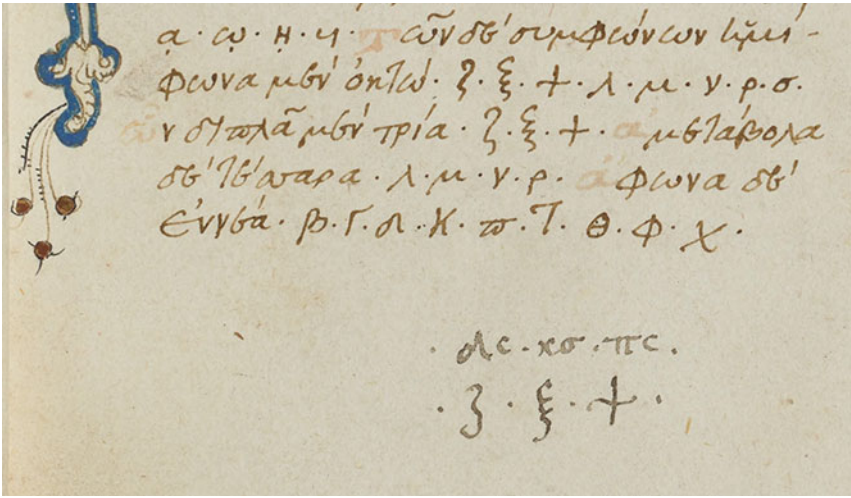 ᾳ · ῳ · ῃ · υι · Τῶν δὲ συμφώνων ἡμί-
φωνα μὲν ὀκτώ · ζ · ξ · ψ · λ · μ · ν · ρ · σ ·
ὧν διπλᾶ μὲν τρία · ζ · ξ · ψ · ἀμετάβολα
δὲ τέσσαρα · λ · μ · ν · ρ · ἄφωνα δὲ
ἐννέα · β · γ · δ · κ · π · τ · θ · φ · χ ·
· δς · κσ · πς ·
· ζ · ξ · ψ ·